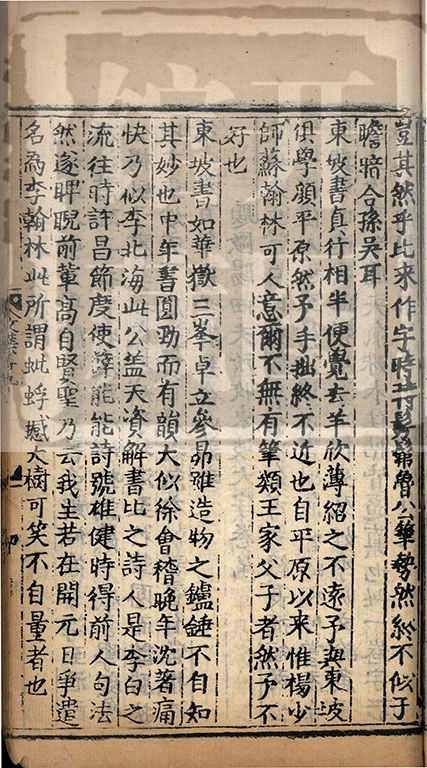 豈其然乎比來作字時時髣髴魯公筆勢然終不似子
瞻暗合孫吳耳
東坡書真行相半便覺去羊欣薄紹之不遠予與東坡
俱學顏平原然予手拙終不近也自平原以來惟楊少
師蘇翰林可人意爾不無有筆類王家父子者然予不
好也
東坡書如華嶽三峯卓立參昴雖造物之鑪錘不自知
其妙也中年書圓勁而有韻大似徐會稽晚年沈著痛
快乃似李北海此公盖天資解書比之詩人是李白之
流往時許昌節度使薛能能詩號雄健時得前人句法
然遂睥睨前輩高自賢聖乃云我生若在開元日爭遣
名為李翰林此所謂蚍蜉撼大樹可笑不自量者也